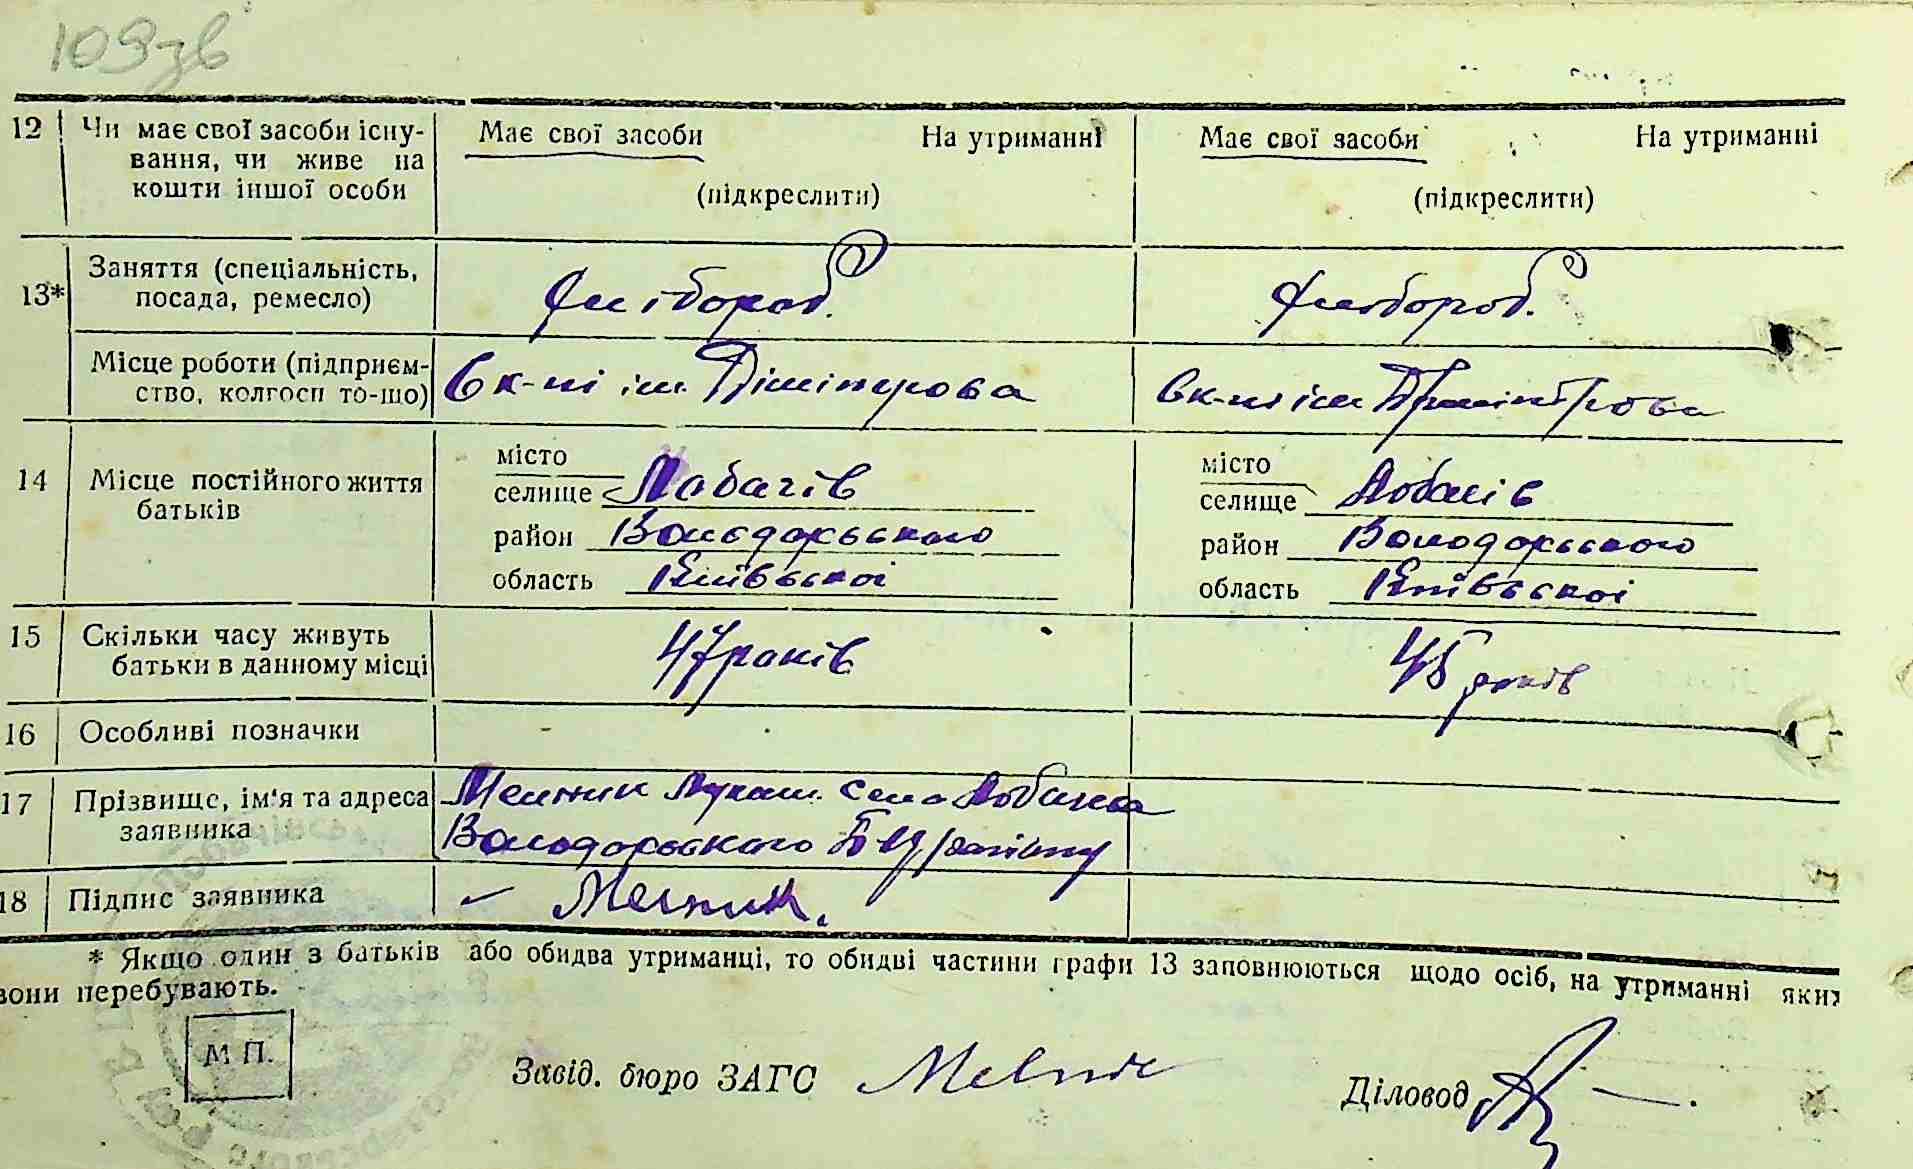 109зв
12 Чи має свої засоби існу-
вання, чи живе на
кошти іншої особи
Має свої засоби На утриманні
(підкреслити)
Має свої засоби На утриманні
(підкреслити)
13* Заняття (спеціальність,
посада, ремесло)
хлібороб.
хлібороб.
Місце роботи (підприєм-
ство, колгосп то-що)
В к-пі ім. Дімітрова
В к-пі ім
14 Місце постійного життя
батьків
місто
селище Лобачів
район Володарського
область Київської
місто
селище Лобачів
район Володарського
область Київської
15 Скільки часу живуть
батьки в данному місці
47 років
45 років
16 Особливі позначки
-
17 Прізвище, ім'я та адреса
заявника
Мельник Лукаш. Село Лобачів
Володарського БЦ/району
18 Підпис заявника
Мельник.
* Якщо один з батьків або обидва утриманці, то обидві частини графи 13 заповнюються щодо осіб, на утриманні яких
вони перебувають.
М П.
Завід. бюро ЗАГС Мельник
Діловод